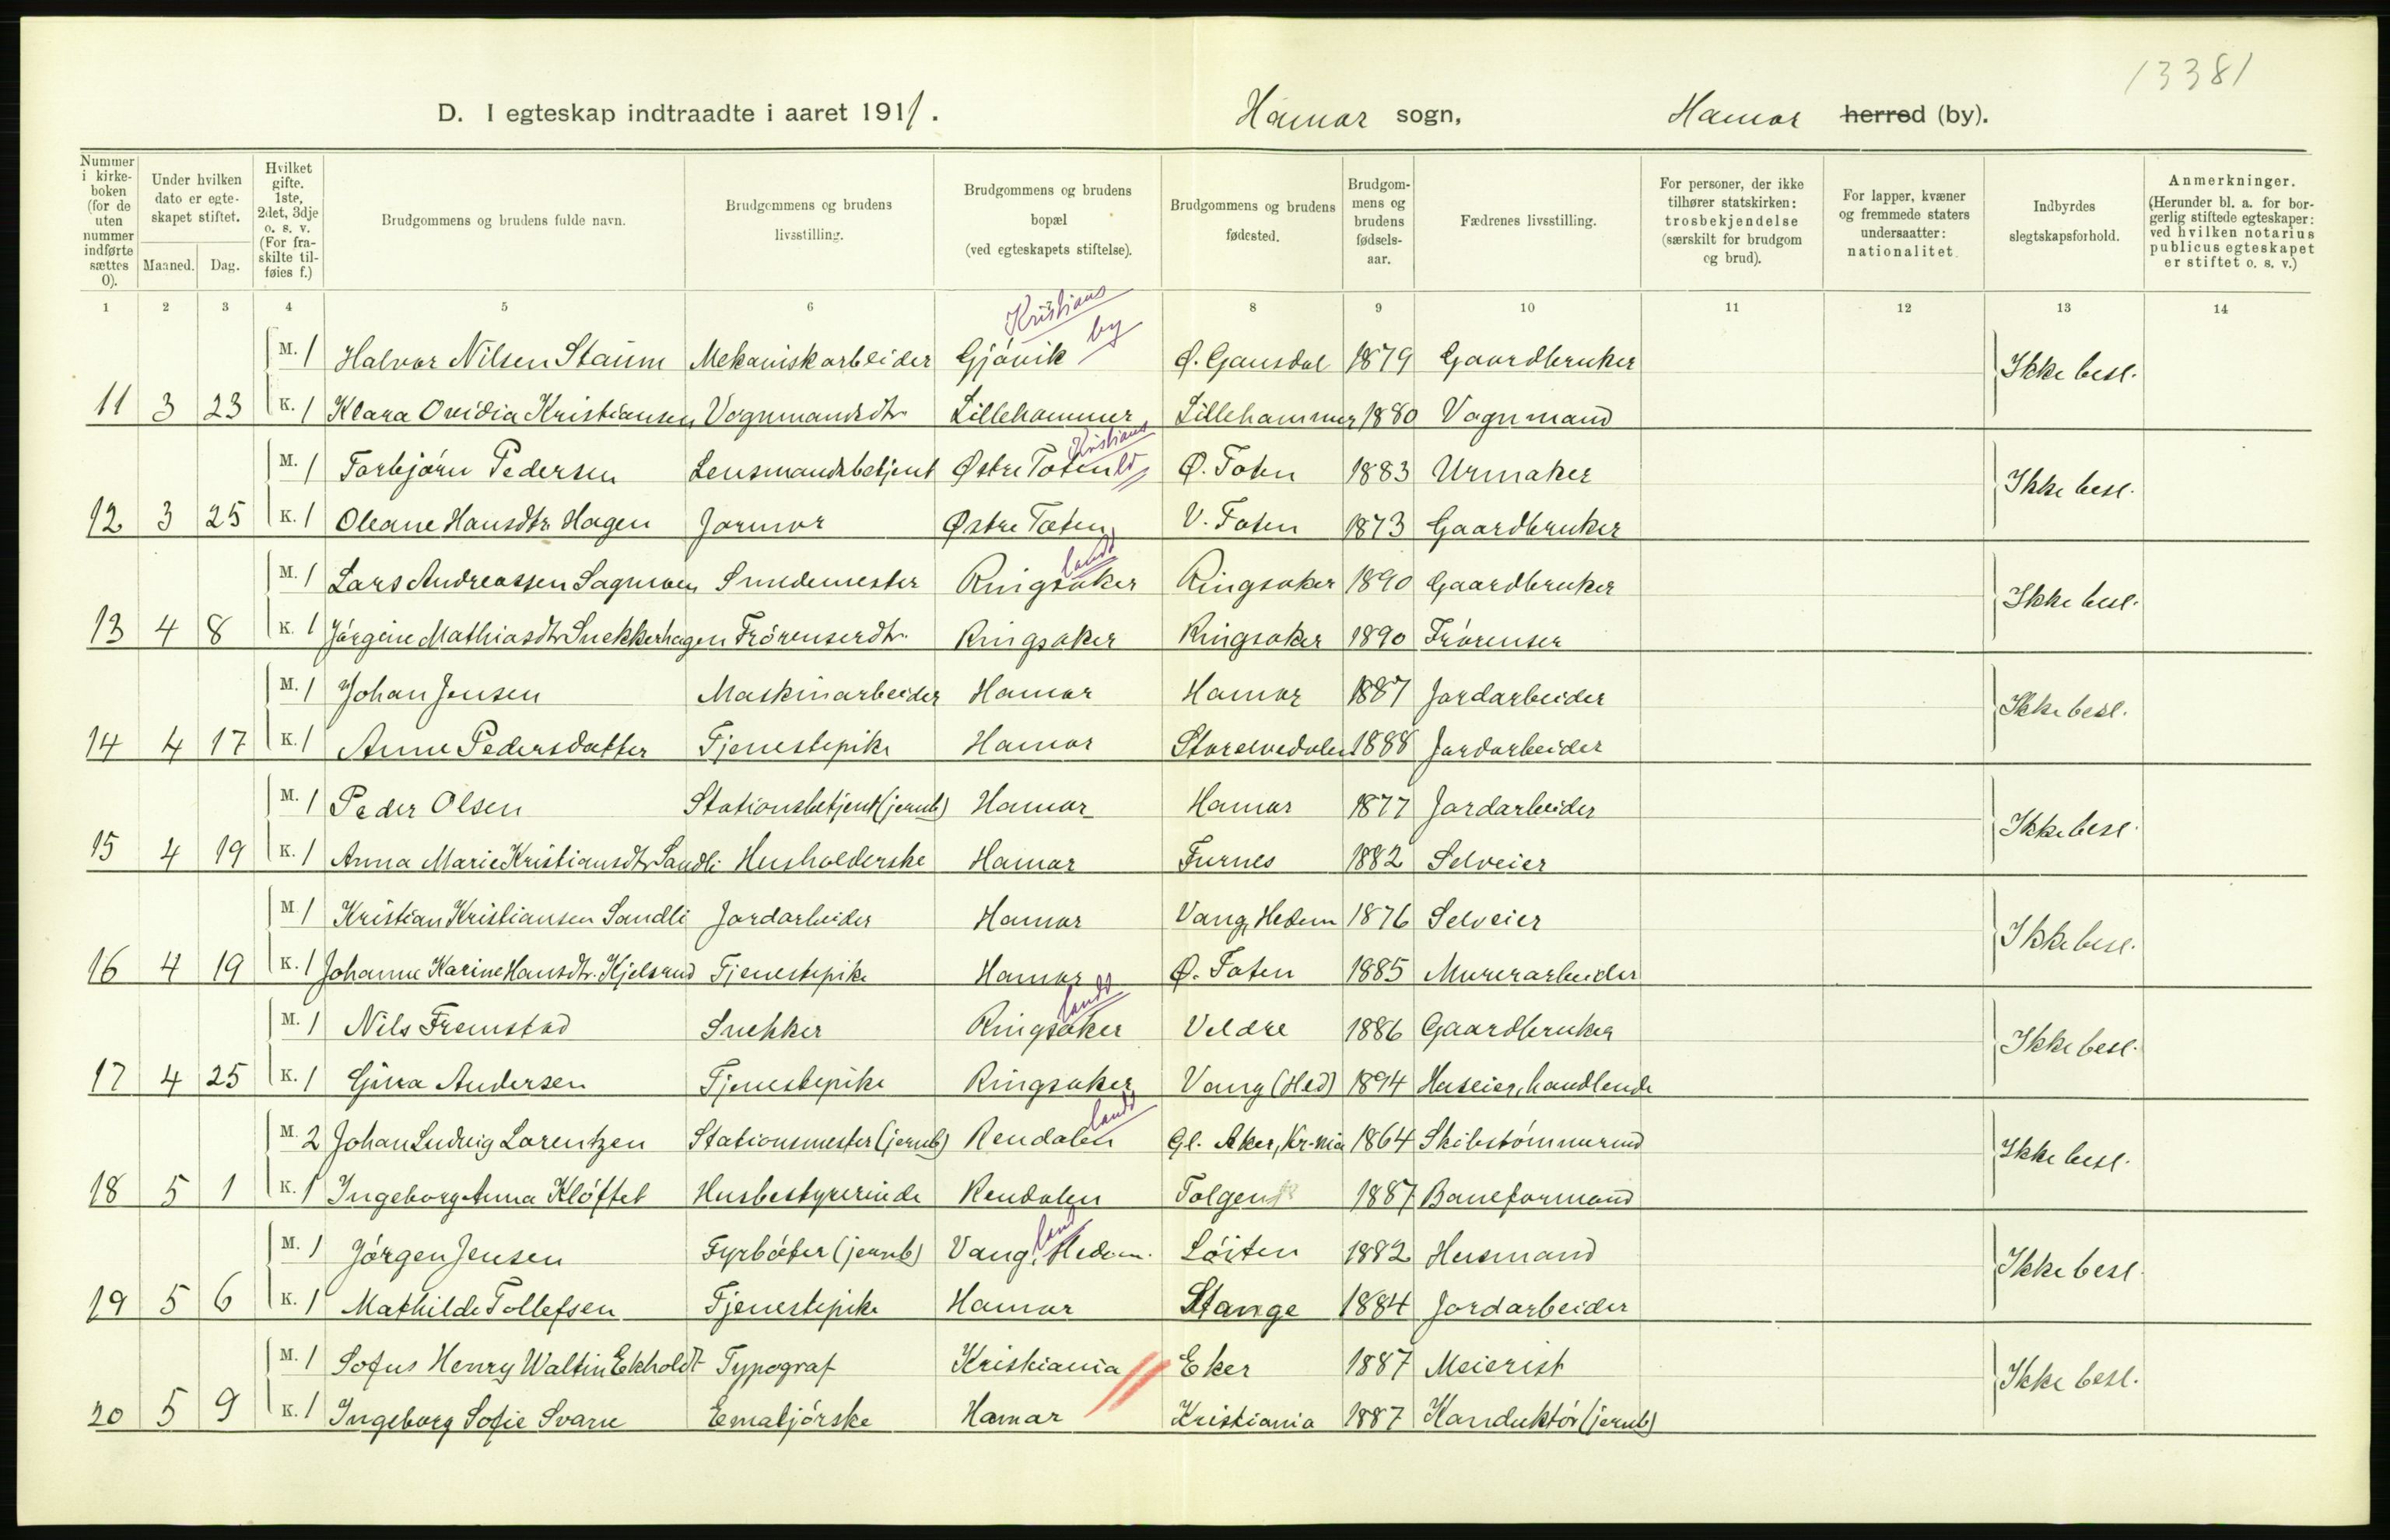 13381
D. I egteskap indtraadte i aaret 1911. Hamar sogn, Hamar herred (by).
Nummer i kirkeboken (for de uten nummer indførte sættes 0). Under hvilken dato er egteskapet stiftet. Maaned. Dag. Hvilket gifte. 1ste, 2det, 3dje o. s. v. (For fraskilte tilføies f.) Brudgommens og brudens fulde navn. Brudgommens og brudens livsstilling. Brudgommens og brudens bopæl (ved egteskapets stiftelse). Brudgommens og brudens fødested. Brudgommens og brudens fødselsaar. Fædrenes livsstilling. For personer, der ikke tilhører statskirken: trosbekjendelse (særskilt for brudgom og brud). For lapper, kvæner og fremmede staters undersaatter: nationalitet. Indbyrdes slegtskapsforhold. Anmerkninger. (Herunder bl. a. for borgerlig stiftede egteskaper: ved hvilken notarius publicus egteskapet er stiftet o. s. v.)
1 2 3 4 5 6 8 9 10 11 12 13 14
Kristians by
M. 1 Halvor Nilsen Staum Mekaniskarbeider Gjøvik Ø. Gausdal 1879 Gaardbruker Ikke besl.
11 3 23 K. 1 Klara Ovidia Kristiansen Vognmandsdtr Lillehammer Lillehammer 1880 Vognmand
Kristians ld
M. 1 Torbjørn Pedersen Lensmandsbetjent Østre Toten Ø. Toten 1883 Urmaker Ikke besl.
12 3 25 K. 1 Oleane Hansdtr Hagen Jormor Østre Toten V. Toten 1873 Gaardbruker
landd
M. 1 Lars Andreassen Sagmoen Smedemester Ringsaker Ringsaker 1890 Gaardbruker Ikke besl.
13 4 8 K. 1 Jørgine Mathiasdtr Snekkerhagen Frørenserdtr. Ringsaker Ringsaker 1890 Frørenser
M. 1 Johan Jensen Maskinarbeider Hamar Hamar 1887 Jordarbeider Ikke besl.
14 4 17 K. 1 Anne Pedersdatter Tjenestepike Hamar Storelvedalen 1888 Jordarbeider
M. 1 Peder Olsen Stationsbetjent (jernb) Hamar Hamar 1877 Jordarbeider Ikke besl.
15 4 19 K. 1 Anna Marie Kristiansdtr Sandli Husholderske Hamar Furnes 1882 Selveier
M. 1 Kristian Kristiansen Sandli Jordarbeider Hamar Vang, Hedem 1876 Selveier Ikke besl.
16 4 19 K. 1 Johanne Karine Hansdtr. Kjelsrud Tjenestepike Hamar Ø. Toten 1885 Murerarbeider
landd
M. 1 Nils Fremstad Snekker Ringsaker Veldre 1886 Gaardbruker Ikke besl.
17 4 25 K. 1 Gina Andersen Tjenestepike Ringsaker Vang (Hed) 1894 Huseier, handlende
landd
M. 2 Johan Ludvig Lorentzen Stationsmester (jernb) Rendalen Gl. Aker, Kr-nia 1864 Skibstømmermd Ikke besl.
18 5 1 K. 1 Ingeborg Anna Kløftet Husbestyrerinde Rendalen Tolgen 1887 Baneformand
land
M. 1 Jørgen Jensen Fyrbøter (jernb) Vang, Hedem. Løiten 1882 Husmand Ikke besl.
19 5 6 K. 1 Mathilde Tollefsen Tjenestepike Hamar Stange 1884 Jordarbeider
M. 1 Sofus Henry Waltin Ekholdt Typograf Kristiania Eker 1887 Meierist Ikke besl.
20 5 9 K. 1 Ingeborg Sofie Svare Emaljørske Hamar Kristiania 1887 Konduktør (jernb)